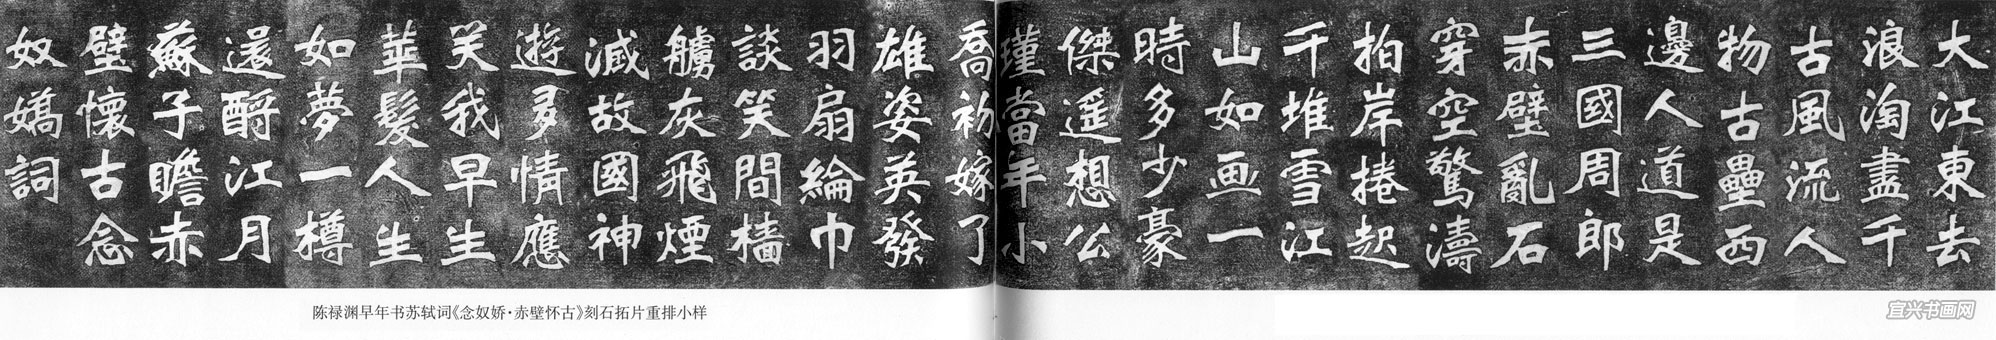 大江東去
浪淘盡千
古風流人
物古壘西
邊人道是
三國周郎
赤壁亂石
穿空驚濤
拍岸捲起
千堆雪江
山如画一
時多少豪
傑遥想公
瑾當年小
喬初嫁了
雄姿英發
羽扇綸巾
談笑間檣
艣灰飛煙
滅故國神
遊多情應
笑我早生
華髮人生
如夢一樽
還酹江月
蘇子瞻赤
壁懷古念
奴嬌詞
陈禄渊早年书苏轼词《念奴娇·赤壁怀古》刻石拓片重排小样
宜兴书画网